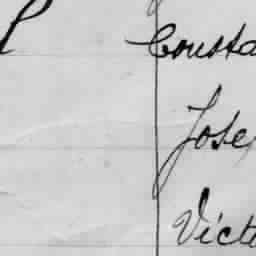 Consta
Jose
Victo